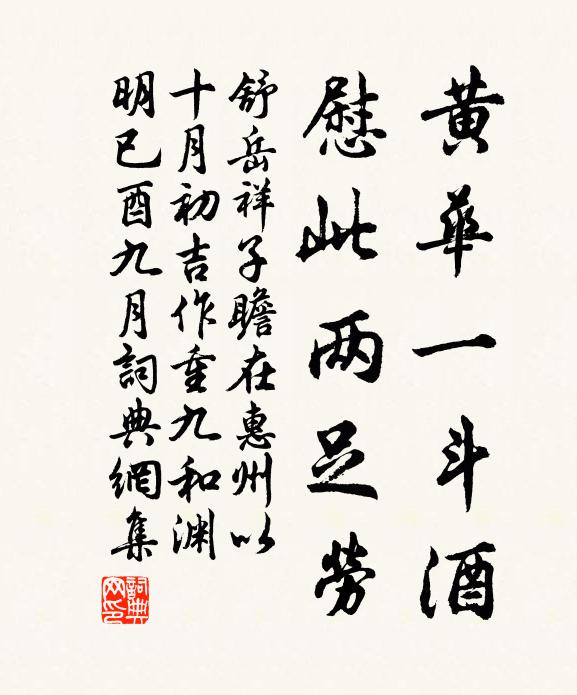 黄華一斗酒
慰此两足勞
舒岳祥子瞻在惠州以
十月初吉作重九和渊
明己酉九月詞典網集
詞典网印